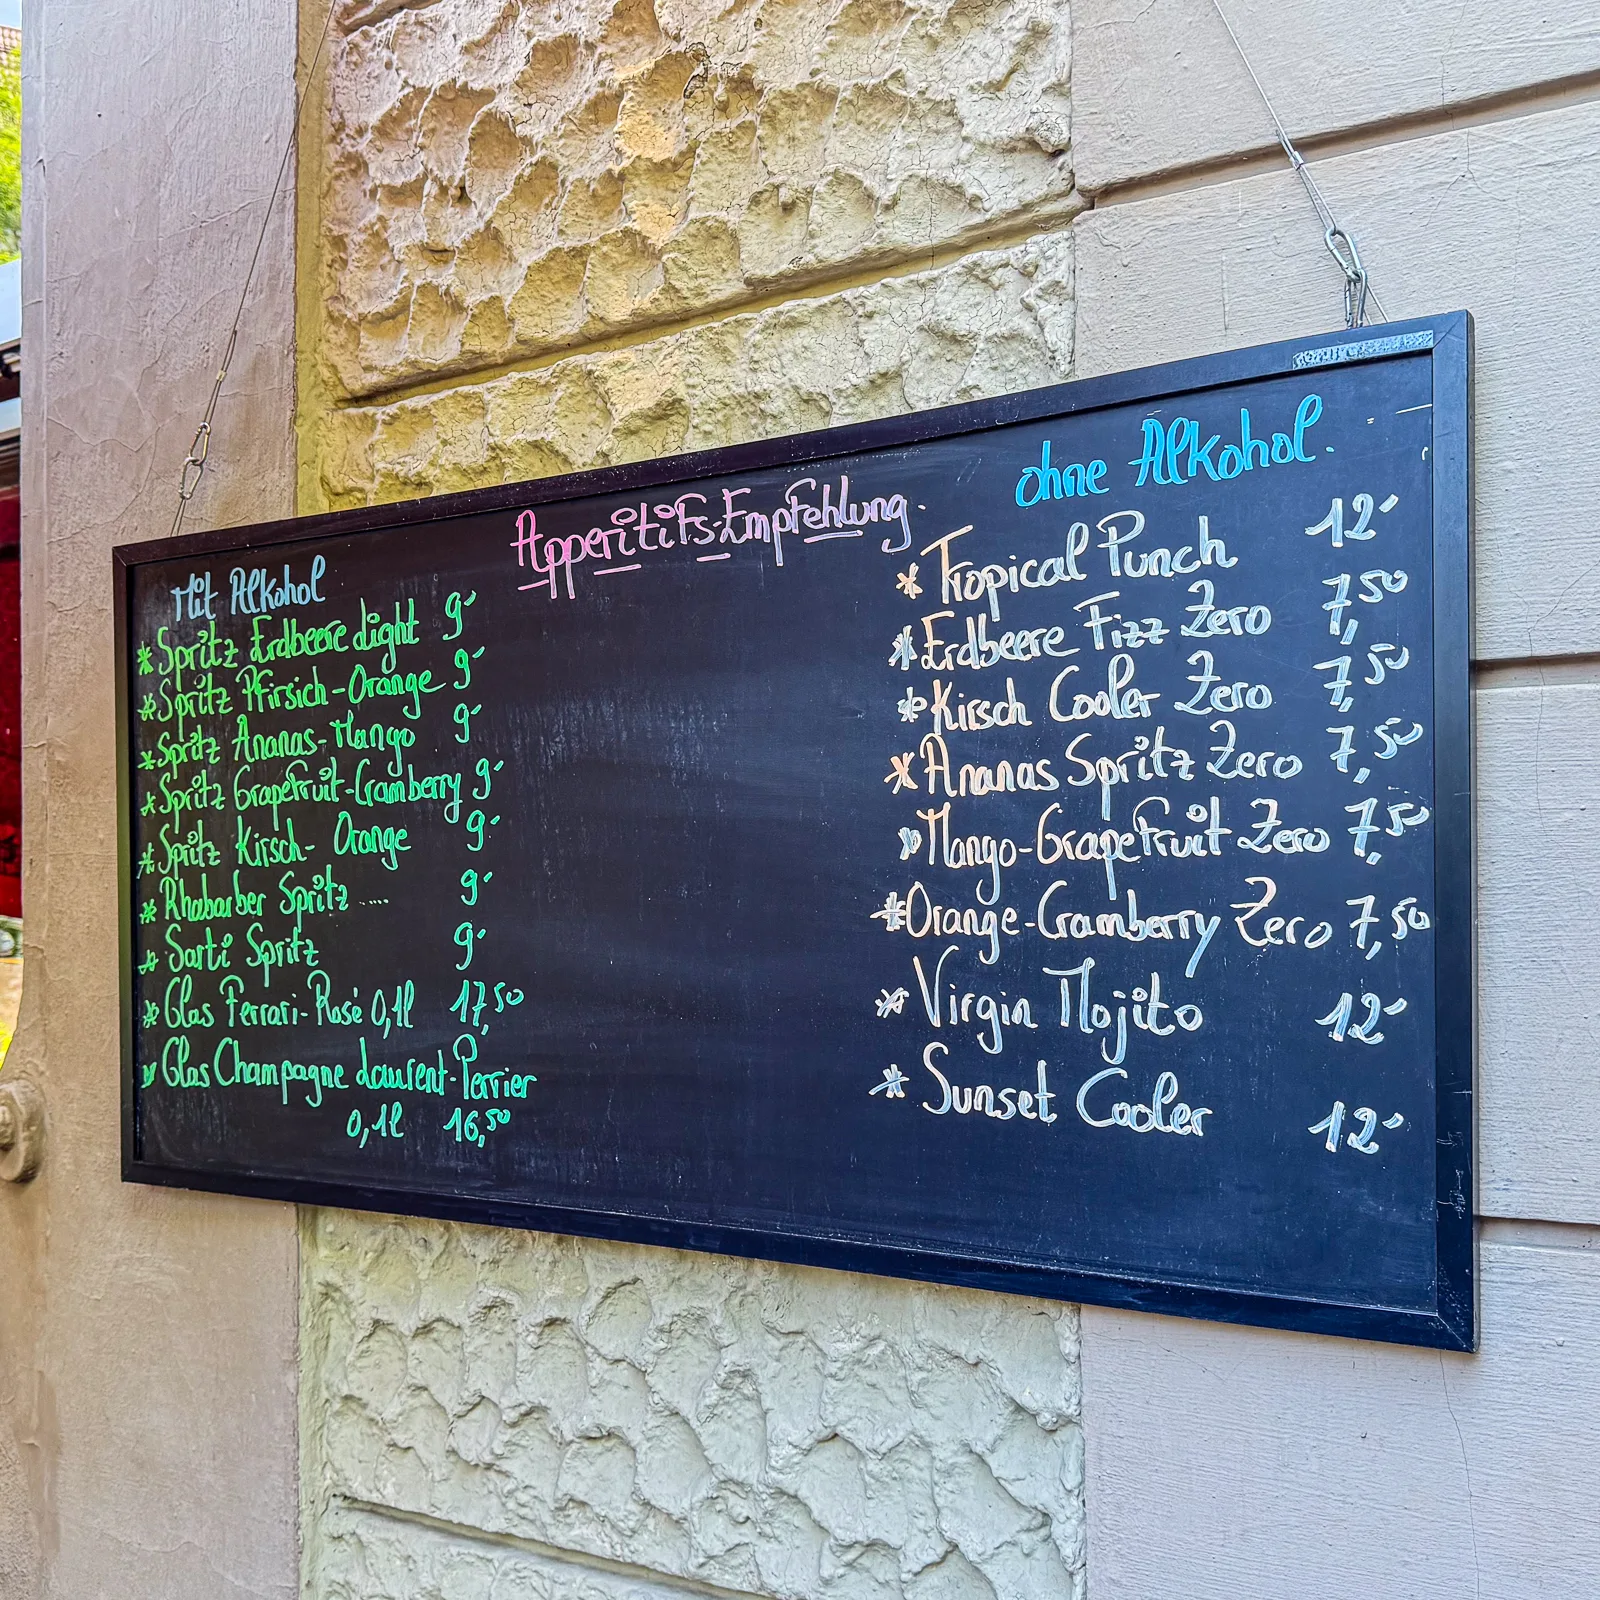 Apperitifs-Empfehlung.
Mit Alkohol
* Spritz Erdbeere Light 9,-
* Spritz Pfirsich-Orange 9,-
* Spritz Ananas-Mango 9,-
* Spritz Grapefruit-Cramberry 9,-
* Spritz Kirsch-Orange 9,-
* Rhabarber Spritz .... 9,-
* Sarti Spritz 9,-
* Glas Ferrari-Rosé 0,1l 17,50
* Glas Champagne Laurent-Perrier
0,1l 16,50
ohne Alkohol.
* Tropical Punch 12,-
* Erdbeere Fizz Zero 7,50
* Kirsch Cooler Zero 7,50
* Ananas Spritz Zero 7,50
* Mango-Grapefruit Zero 7,50
* Orange-Cramberry Zero 7,50
* Virgin Mojito 12,-
* Sunset Cooler 12,-